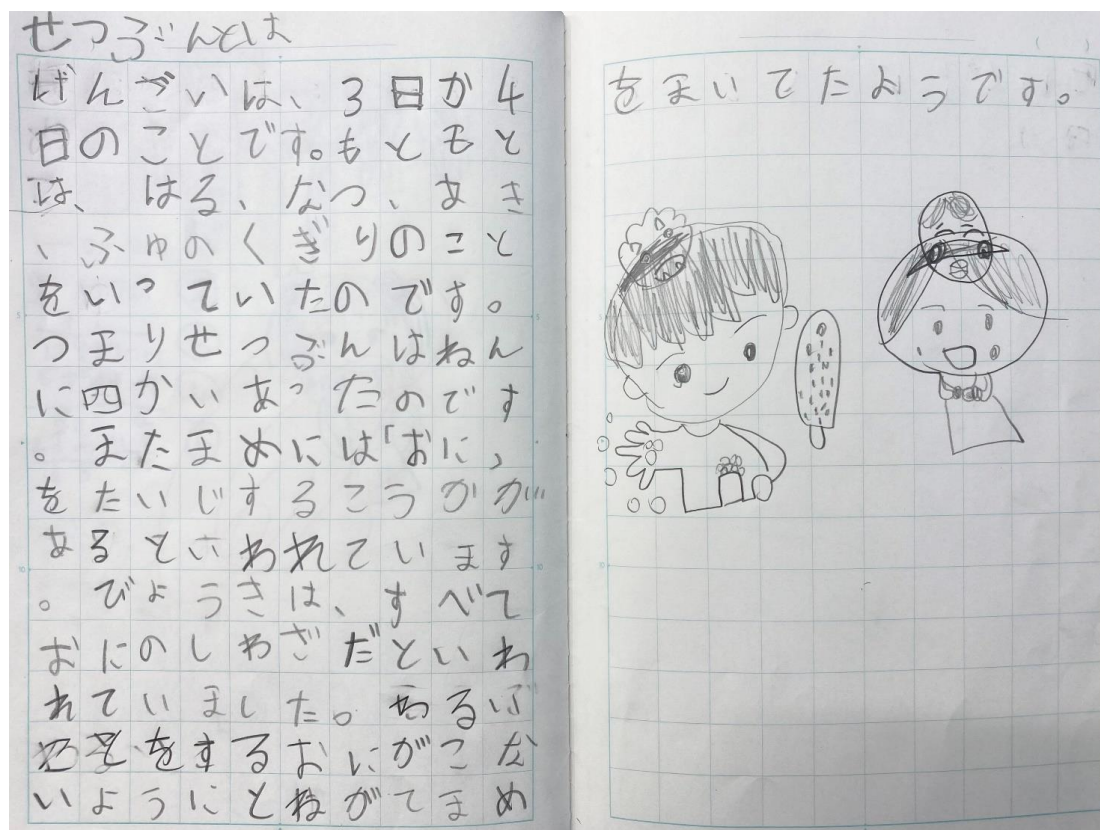 せつぶんとは
げんざいは、3日か4
日のことです。もともと
は、はる、なつ、あき
、ふゆのくぎりのこと
をいっていたのです。
つまりせつぶんはねん
に四かいあったのです
。またまめには「おに」
をたいじするこうかが
あるといわれています
。びょうきは、すべて
おにのしわざだといわ
れていました。わるい
をするおにがこな
いようにとねがてまめ
をまいてたようです。